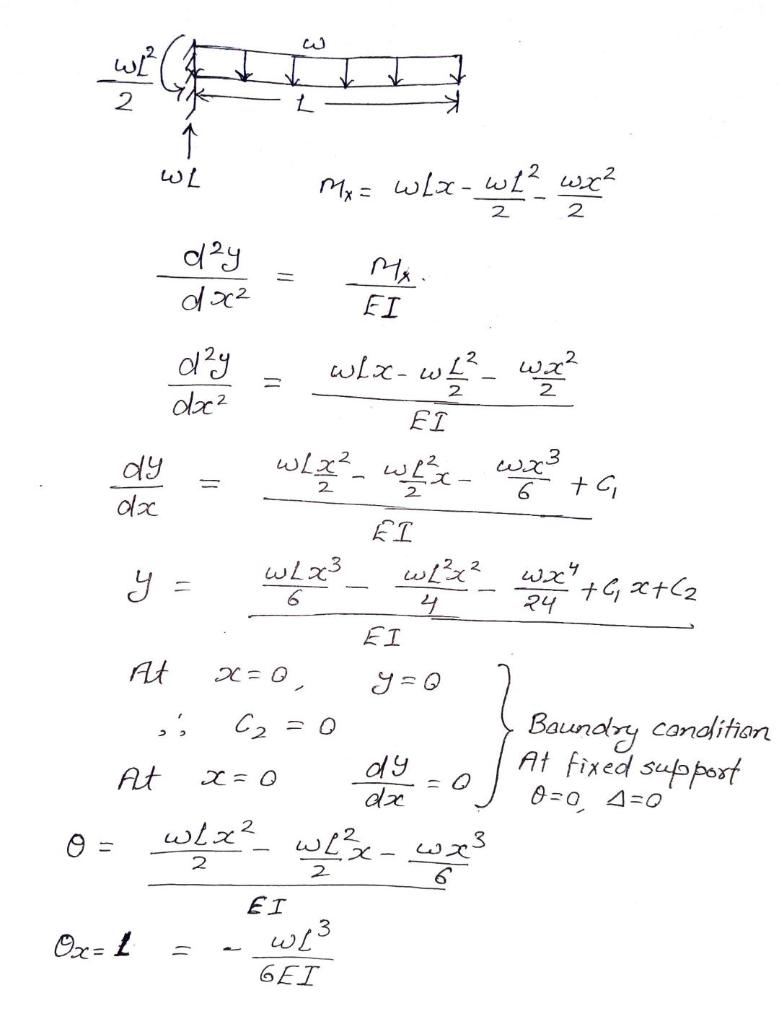 w
wL²/2
L
wL
Mx = wLx - wL²/2 - wx²/2
d²y/dx² = Mx/EI.
d²y/dx² = (wLx - wL²/2 - wx²/2)/EI
dy/dx = (wLx²/2 - wL²/2 x - wx³/6 + C₁)/EI
y = (wLx³/6 - wL²x²/4 - wx⁴/24 + C₁x + C₂)/EI
At x = 0, y = 0
∴ C₂ = 0
At x = 0 dy/dx = 0
Boundry condition
At fixed support
θ=0, Δ=0
θ = (wLx²/2 - wL²/2 x - wx³/6)/EI
θx=L = - wL³/6EI